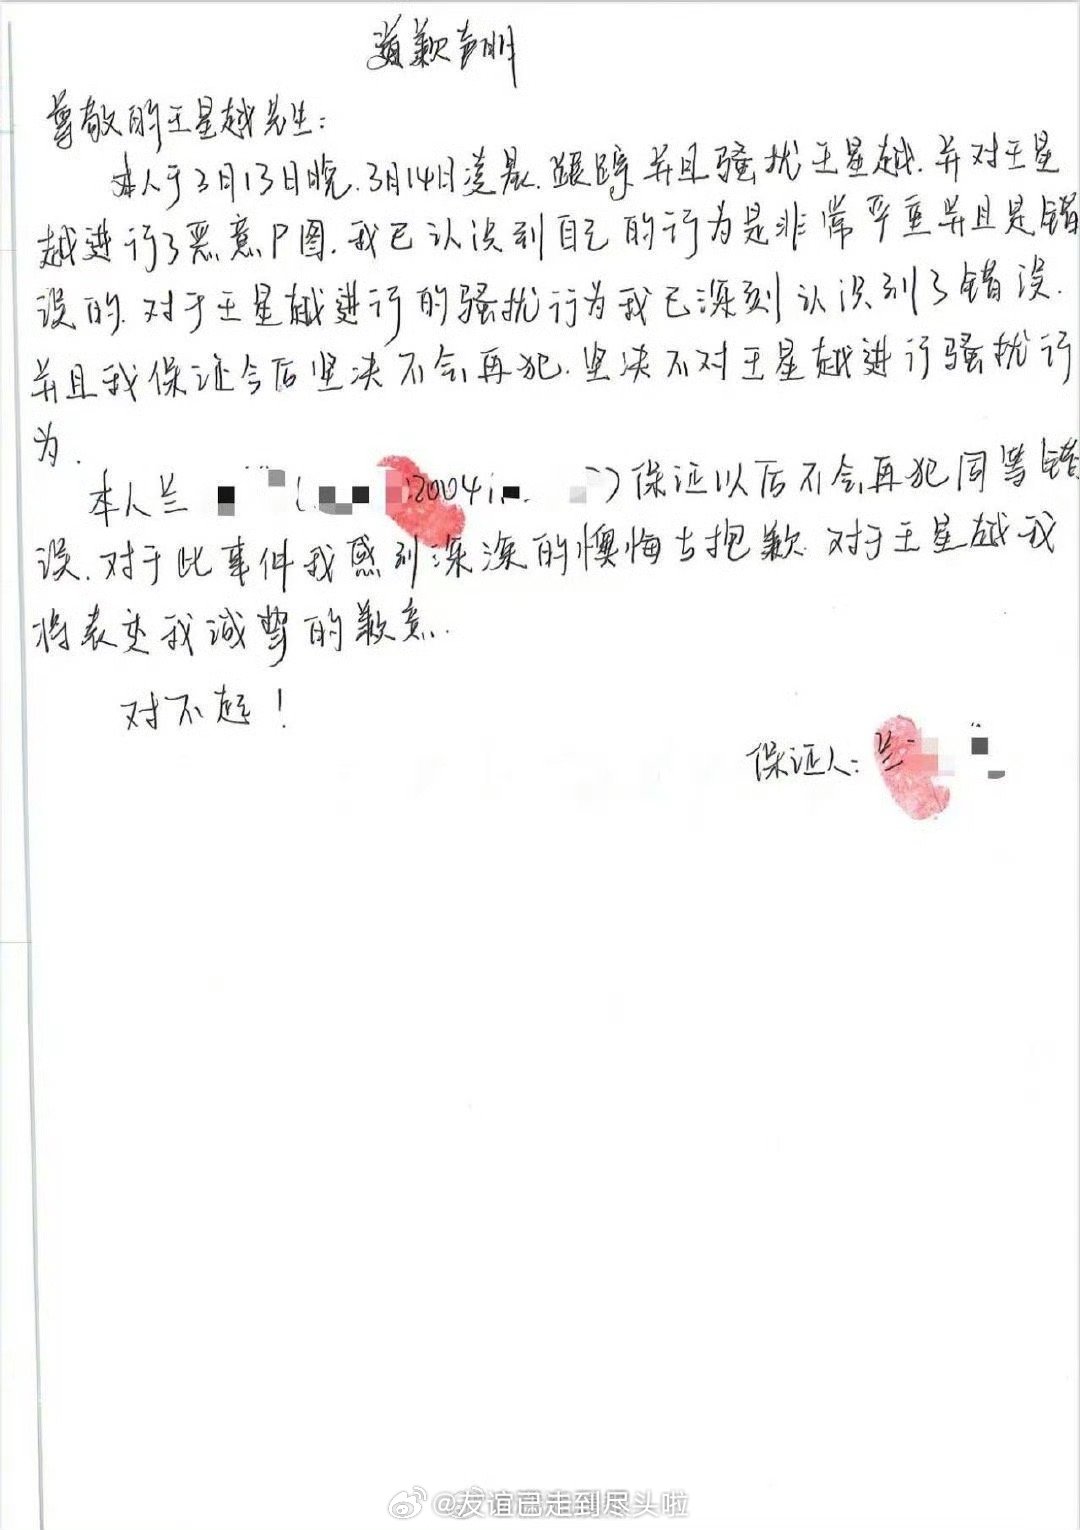 道歉声明
尊敬的王星越先生：
本人于3月13日晚.3月14日凌晨.跟踪并且骚扰王星越.并对王星
越进行了恶意P图.我已认识到自己的行为是非常严重并且是错
误的.对于王星越进行的骚扰行为我已深刻认识到了错误.
并且我保证今后坚决不会再犯.坚决不对王星越进行骚扰行
为.
本人兰 ( 2004 ) 保证以后不会再犯同等错
误.对于此事件我感到深深的懊悔与抱歉.对于王星越我
将表达我诚挚的歉意.
对不起！
保证人：兰
@友谊已走到尽头啦